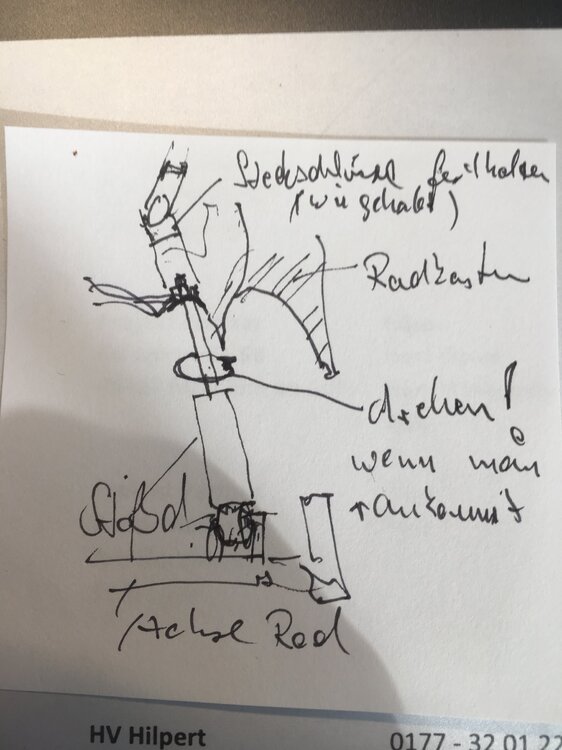 Steckschlüssel festhalten
(wie gehabt)
Radkasten
drehen!
wenn man
rankommt
Stoßd
Achse Rad
HV Hilpert
0177 - 32 01 22